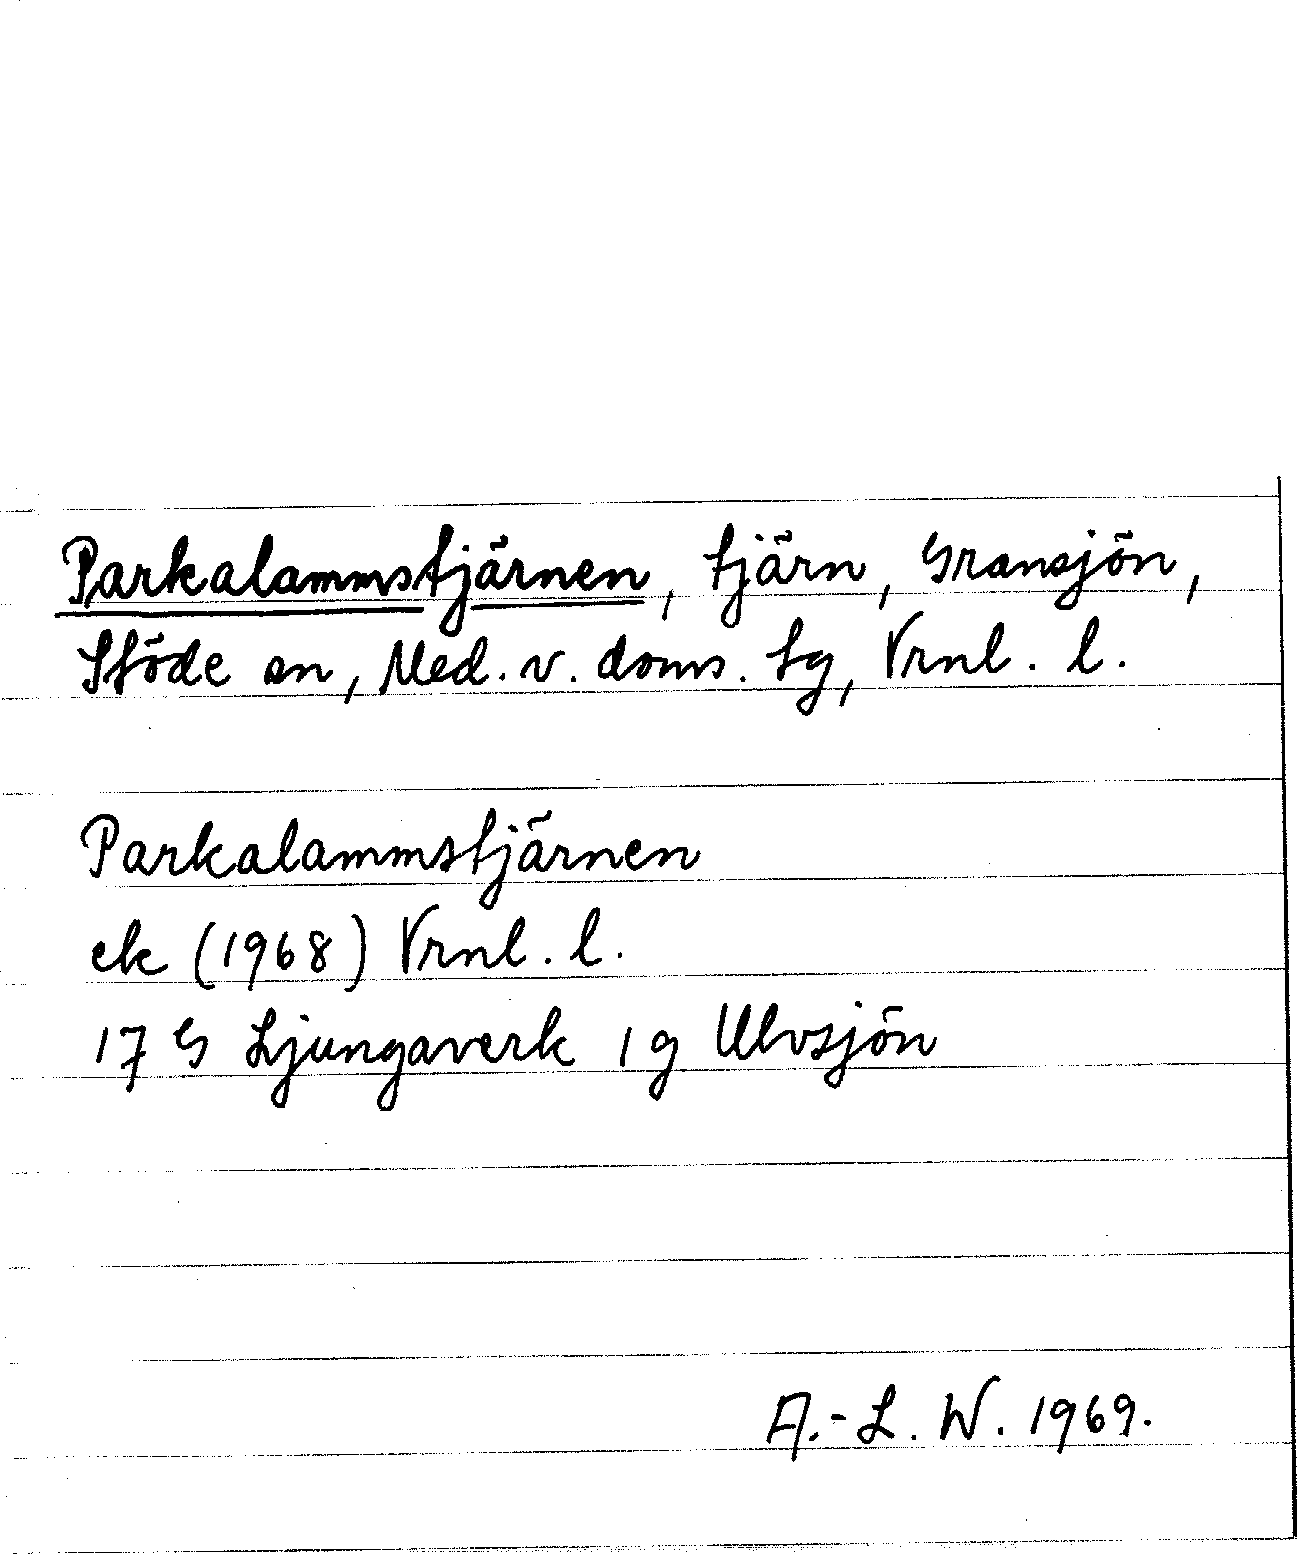 Parkalammstjärnen, tjärn, Gransjön,
Stöde sn, Med. v. doms. tg, Vrnl. l.
Parkalammstjärnen
ek (1968) Vrnl. l.
17 G Ljungaverk 1 g Ulvsjön
A.-L. W. 1969.